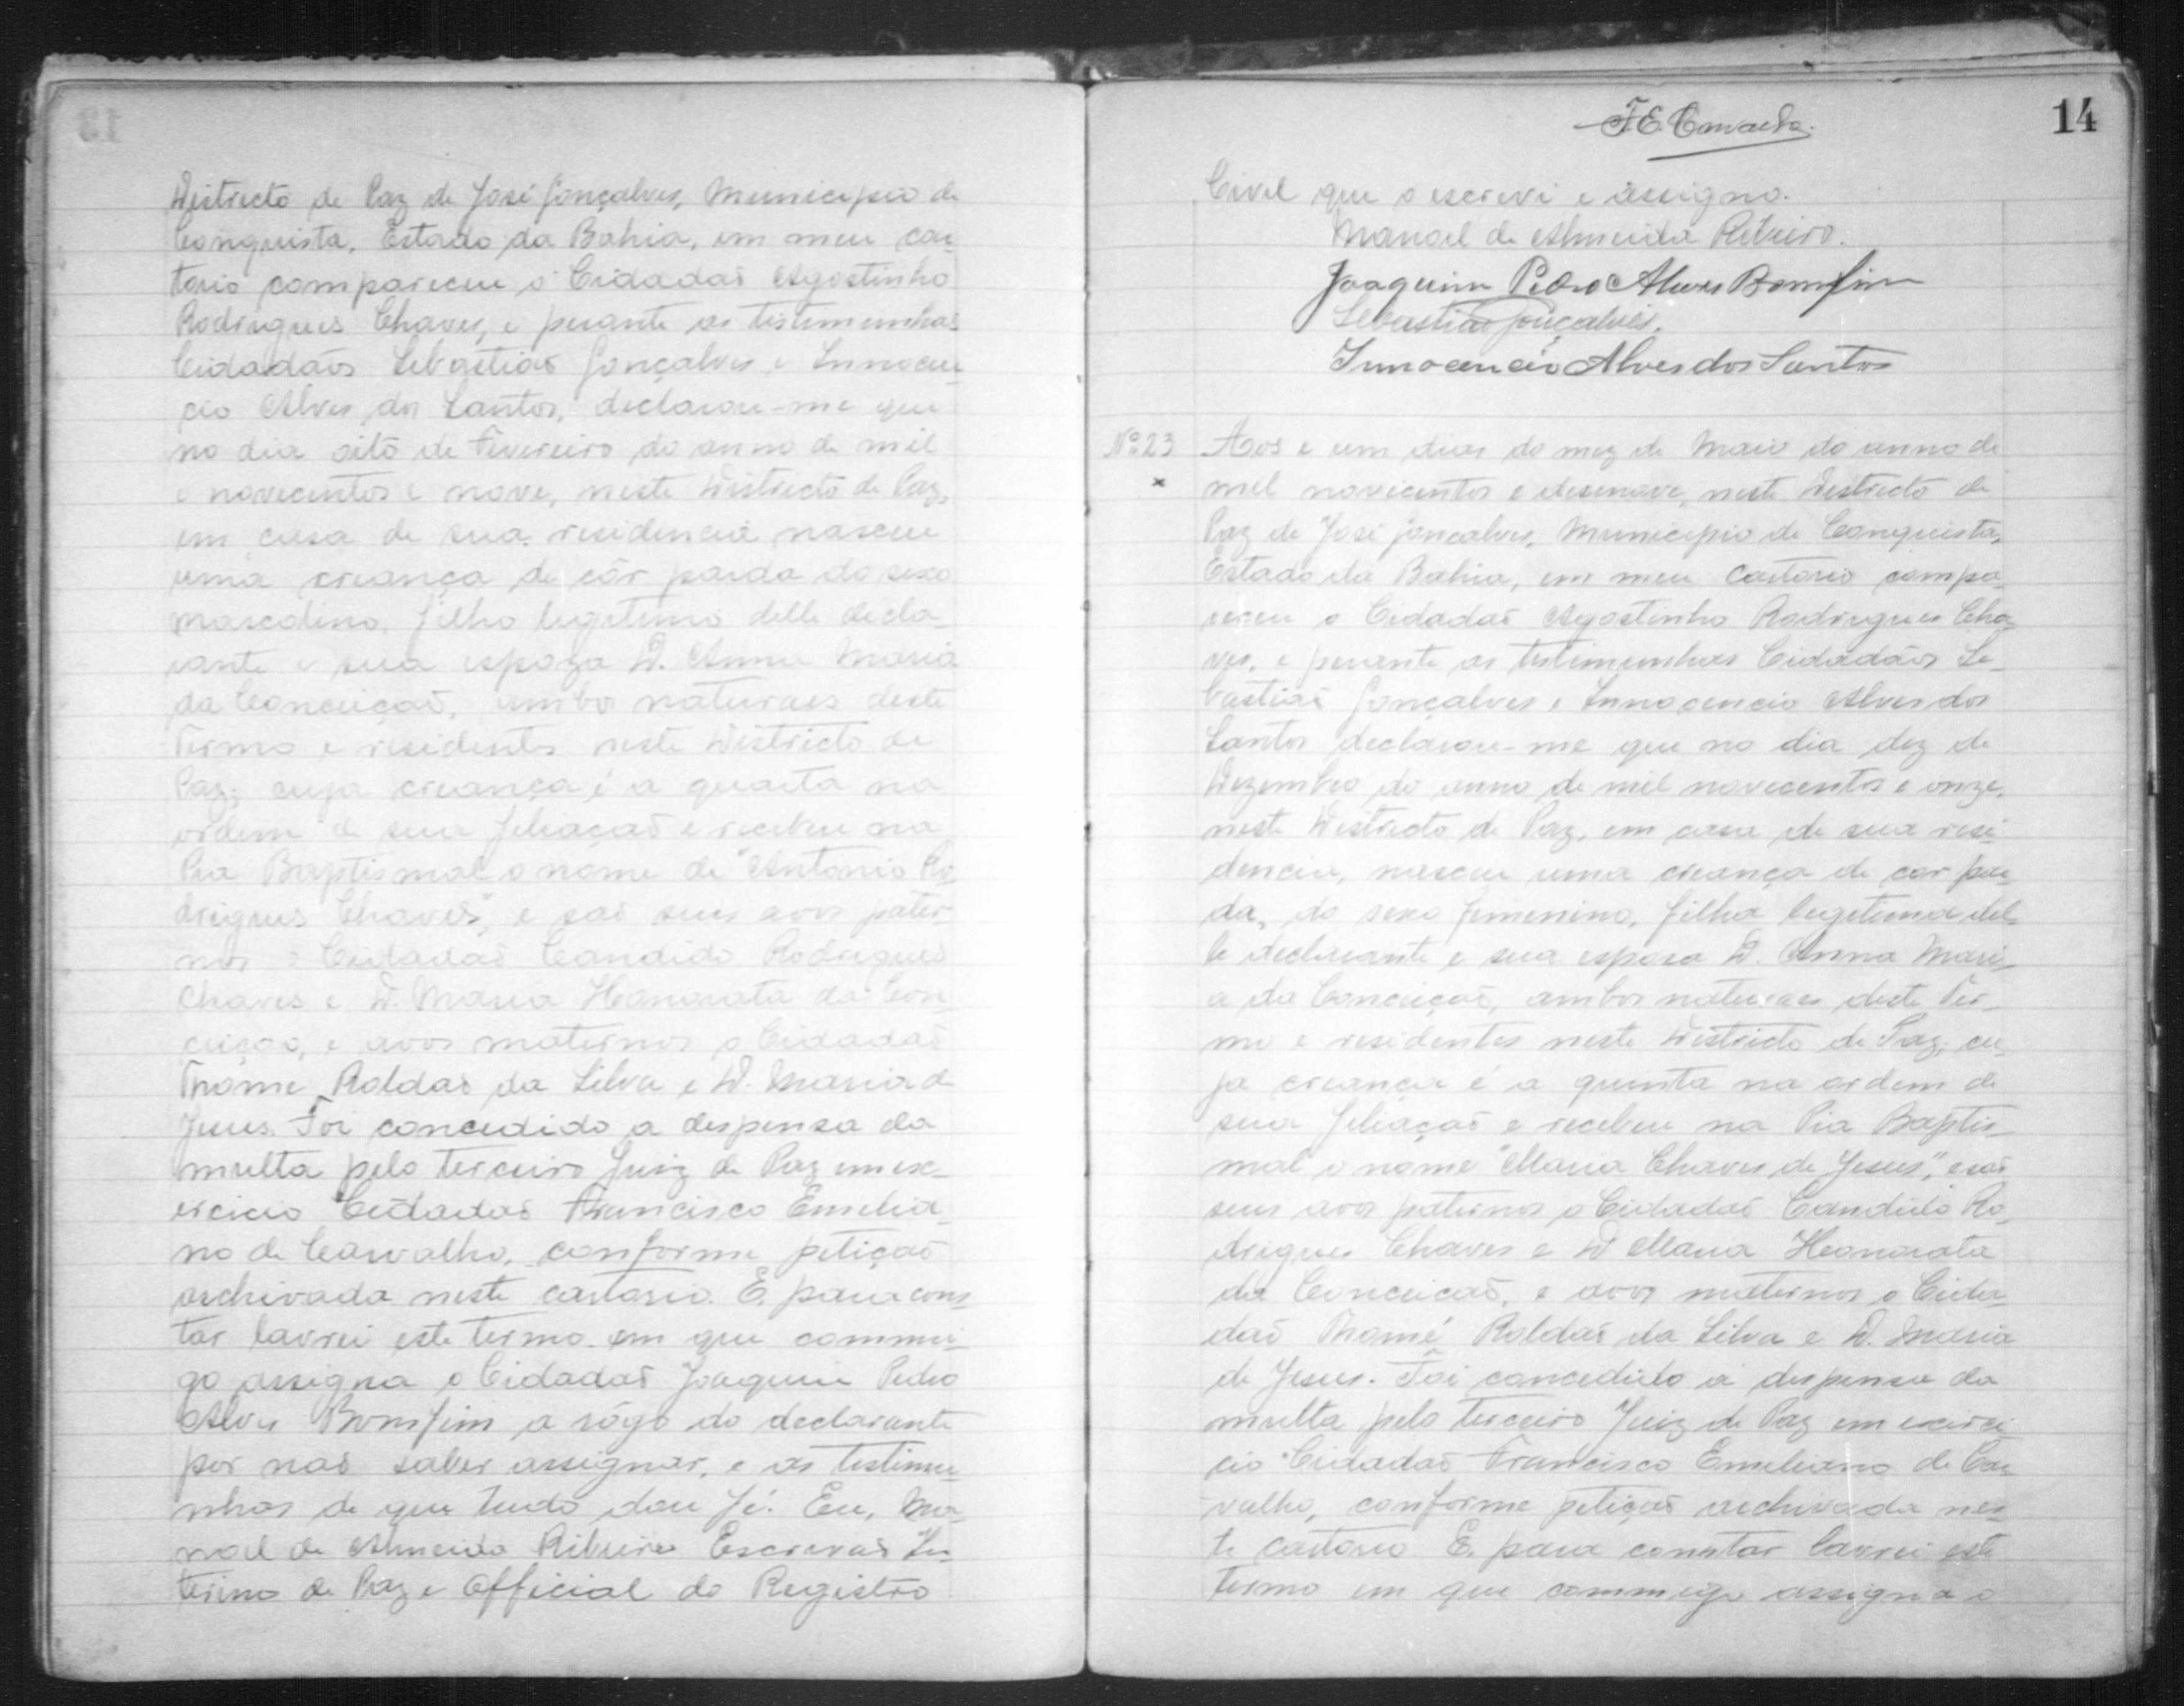 Districto de Paz de José Gonçalves, Municipio de
Conquista, Estado da Bahia, em meu car
torio compareceu o Cidadaõ Agostinho
Rodrigues Chaves, e perante as testimunhas
Cidadãos Sebastiaõ Gonçalves e Innocen
cio Alves dos Santos, declarou-me que
no dia oito de Fevereiro do anno de mil
e novecentos e nove, neste Districto de Paz,
em casa de sua residencia nasceu
uma creança de côr parda do sexo
mascolino, filho legitimo delle decla-
rante e sua espoza D. Anna Maria
da Conceiçaõ, ambos naturaes deste
Termo e residentes neste Districto de
Paz; cuja creança é a quarta na
ordem de sua filiaçaõ e recebeu na
Pia Baptismal o nome de "Antonio Ro-
drigues Chaves", e saõ seus avos pater-
nos o Cidadaõ Candido Rodrigues
Chaves e D. Maria Honorata da Con-
ceição, e avos maternos o Cidadaõ
Thomé Roldaõ da Silva e D. Maria de
Jesus. Foi concedido a despensa da
multa pelo terceiro Juiz de Paz em ex-
ercicio Cidadaõ Francisco Emilia-
no de Carvalho, conforme petiçaõ
archivada neste cartorio. E, para cons
tar lavrei este termo em que commi-
go assigna o Cidadaõ Joaquim Pedro
Alves Bomfim a rôgo do declarante
por naõ saber assignar, e as testimu-
nhas de que tudo dou fé. Eu, Ma-
noel de Almeida Ribeiro Escrivaõ In-
terino de Paz e Official do Registro
F E Carvalho
14
Civel que o escrevi e assigno.
Manoel de Almeida Ribeiro.
Joaquim Pedro Alves Bomfim
Sebastiaõ Gonçalves.
Innocencio Alves dos Santos
Nº 23 Aos e um dias do mez de Maio do anno de
mil novecentos e desenove, neste Districto de
Paz de José Goncalves, Municipio de Conquista,
Estado da Bahia, em meu Cartorio compa-
receu o Cidadaõ Agostinho Rodrigues Cha-
ves, e perante as testimunhas Cidadãos Se-
bastiaõ Gonçalves e Innocencio Alves dos
Santos declarou-me que no dia dez de
Dezembro do anno de mil novecentos e onze,
neste Districto de Paz, em casa de sua resi-
dencia, nasceu uma creança de cor par-
da, do sexo femenino, filha legitima del-
le declarante e sua esposa D. Anna Mari-
a da Conceiçaõ, ambos naturaes deste Ter-
mo e residentes neste Districto de Paz; cu-
ja creança é a quinta na ordem de
sua filiaçaõ e recebeu na Pia Baptis-
mal o nome "Maria Chaves de Jesus", e saõ
seus avos paternos o Cidadaõ Candido Ro-
drigues Chaves e D Maria Honorata
da Conceicaõ, e avos maternos o Cida-
daõ Thomé Roldaõ da Silva e D. Maria
de Jesus. Foi concedido a despensa da
multa pelo terceiro Juiz de Paz em exerci-
cio Cidadaõ Francisco Emiliano de Car-
valho, conforme petiçaõ archivada nes-
te cartorio E, para constar lavrei este
termo em que commigo assigna o